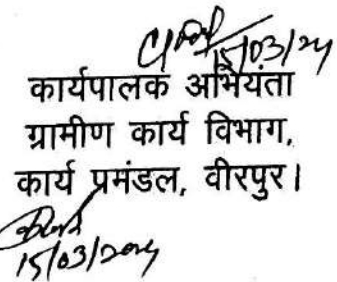 15/03/24
कार्यपालक अभियंता
ग्रामीण कार्य विभाग,
कार्य प्रमंडल, वीरपुर।
15/03/2024